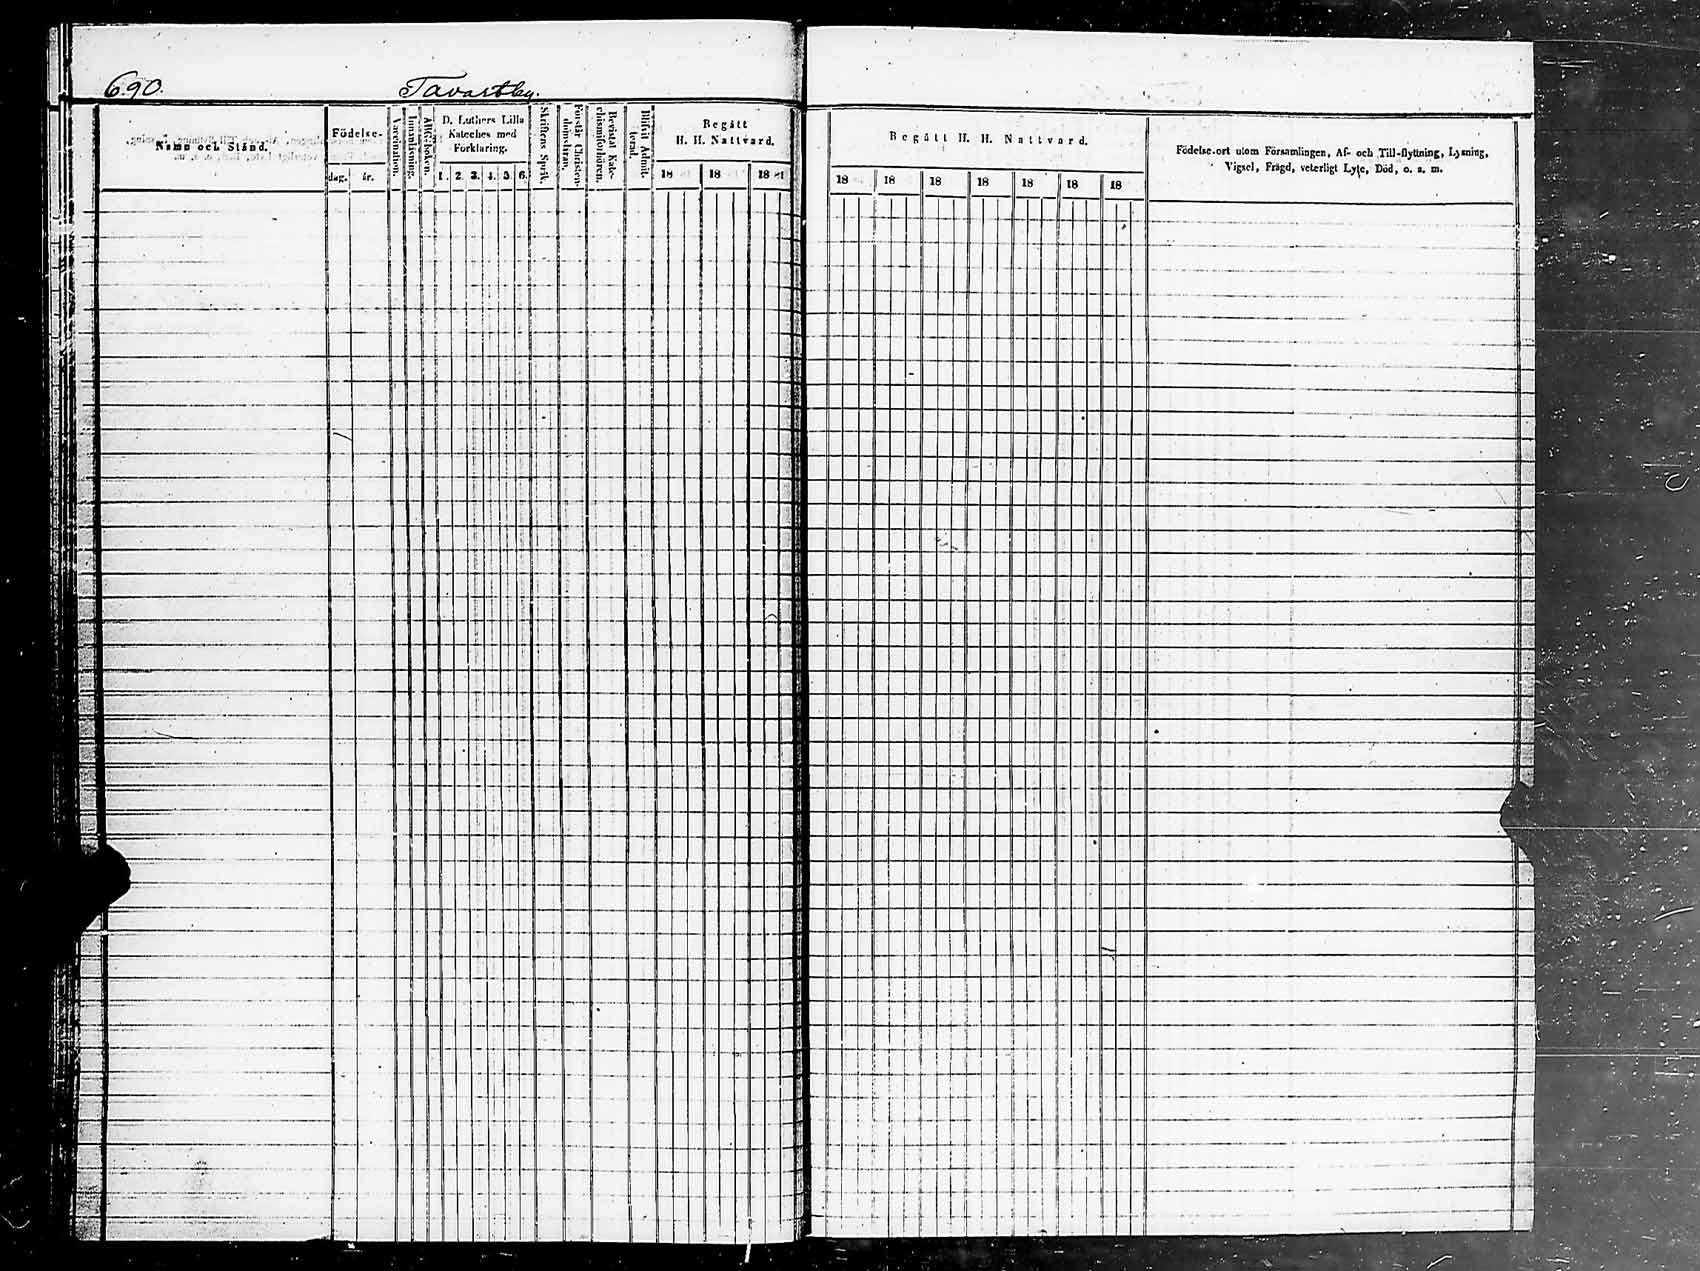 690. Tavastby.
Namn och Stånd.
Födelse-
dag. år.
Vaccination.
Innanläsning.
ABC-boken.
D. Luthers Lilla
Kateches med
Förklaring.
1. 2. 3. 4. 5 6.
Skriftens Språk.
Förstår Christen-
domsläran.
Bevistat Kate-
chismiförhören.
Blifvit Admit-
terad.
Begått
H. H. Nattvard.
18 18 18
Begått H. H. Nattvard.
18 18 18 18 18 18 18
Födelse-ort utom Församlingen, Af- och Till-flyttning, Lysning,
Vigsel, Frägd, veterligt Lyte, Död, o. s. m.